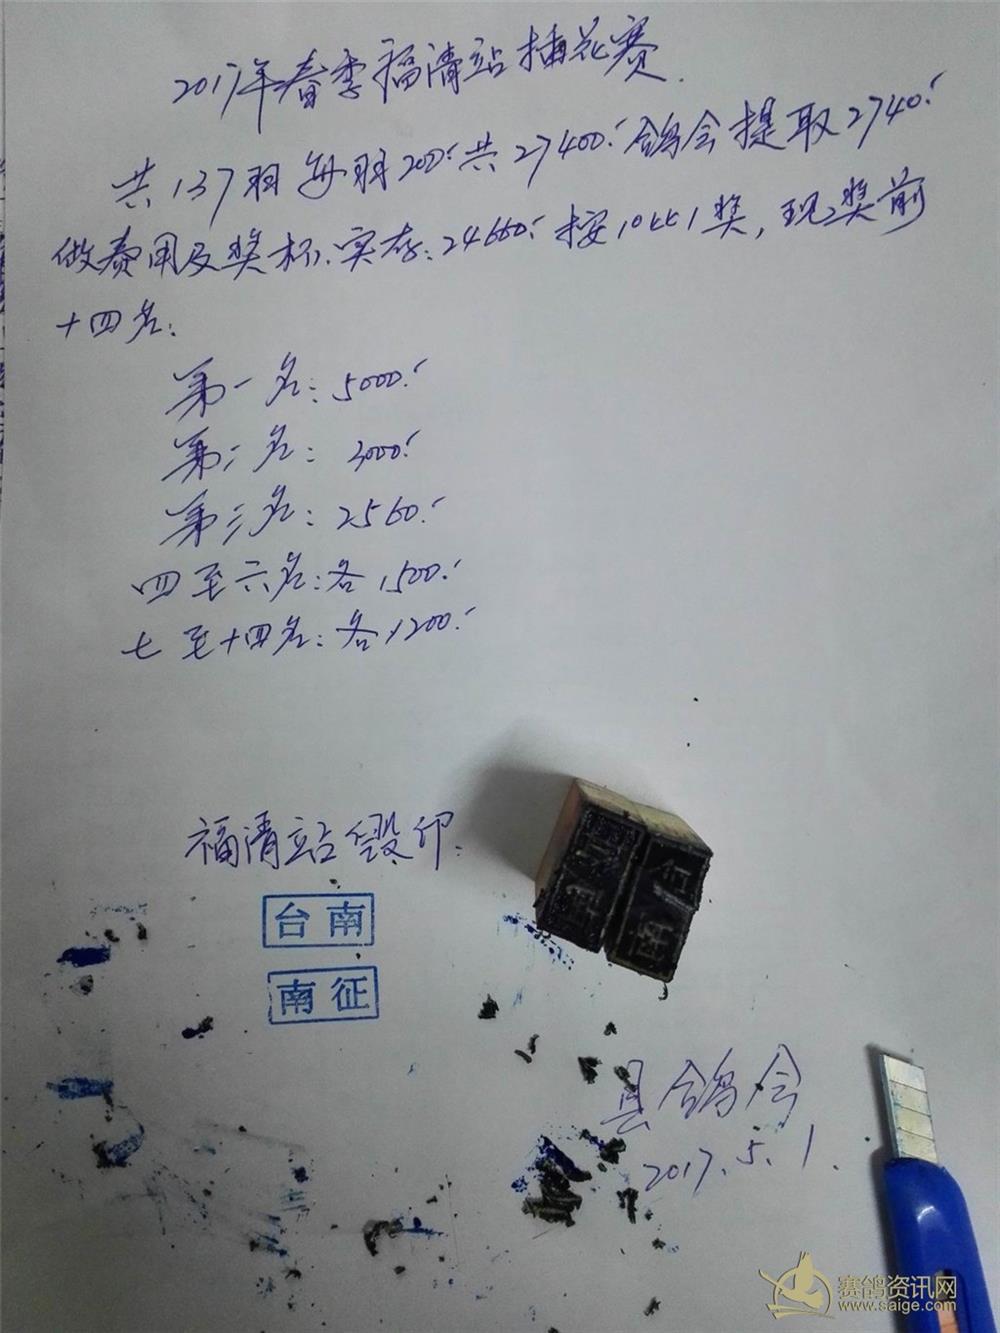 2017年春季福清站插花赛.
共137羽每羽200.共27400.鸽会提取2740.
做费用及奖杯.实存:24660.按10取1奖,现奖前
十四名:
第一名:5000.
第二名:3000.
第三名:2560.
四至六名:各1500.
七至十四名:各1200.
福清站毁印.
台南
南征
县鸽会
2017.5.1.
赛鸽资讯网
www.saige.com